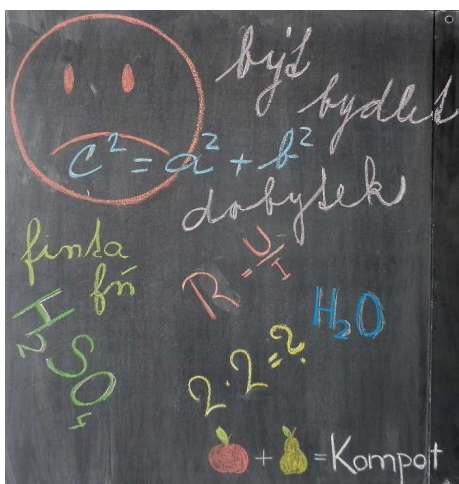 být
bydlet
c² = a² + b²
dobytek
finta
fň
R = U/I
H₂SO₄
H₂O
2 · 2 = ?
+ = Kompot